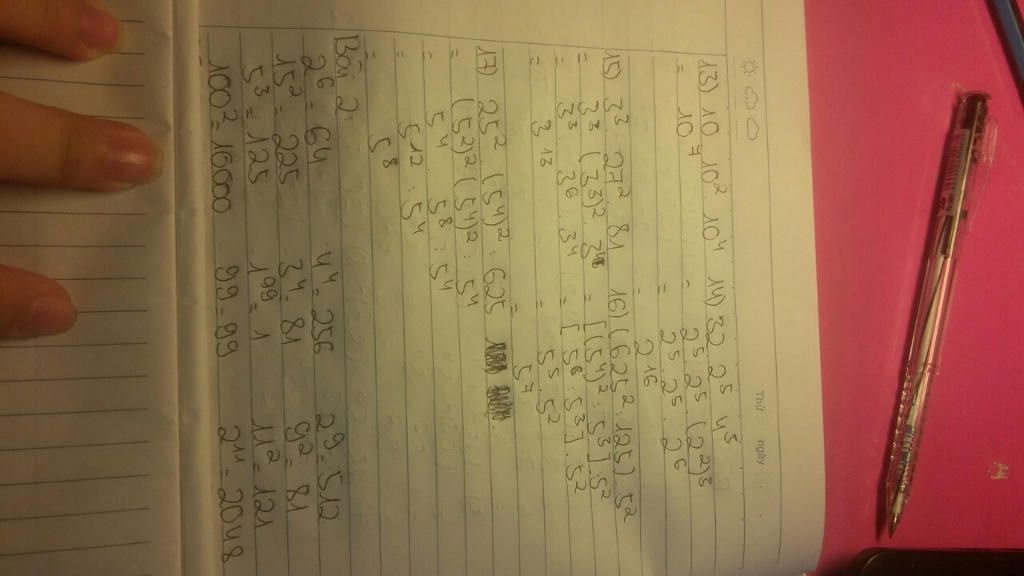 Thứ ngày
13) 10 . 10² . 10⁴ 14) 32 . 2⁵ . 4⁵
= 10⁷ = 2⁵ . 2⁵ . (2²)³
= 2⁵ . 2⁵ . 2⁶
= 2¹⁶
15) 3³ . 27² . 81 16) (625² : 125) . 5²
= 3³ . (3³)² . 3⁴ = [(5⁴)² : 5³] . 5²
= 3³ . 3⁶ . 3⁴ = [5⁸ : 5³] . 5²
= 3¹³ = 5⁵ . 5²
= 5⁷
17) 25² . (5⁴)² : 625
= (5²)² . (5⁴)² : 5⁴
= 5⁴ . 5⁸ : 5⁴
= 5¹² : 5⁴
= 5⁸
Bài 2
2⁶ = 64 4⁴ = 256 2⁹ = 512
15² = 225 3⁴ = 81 9² = 81
5³ = 125 1⁹⁹ = 1 11² = 121
100² = 10000 99¹ = 99 2¹¹ = 2048